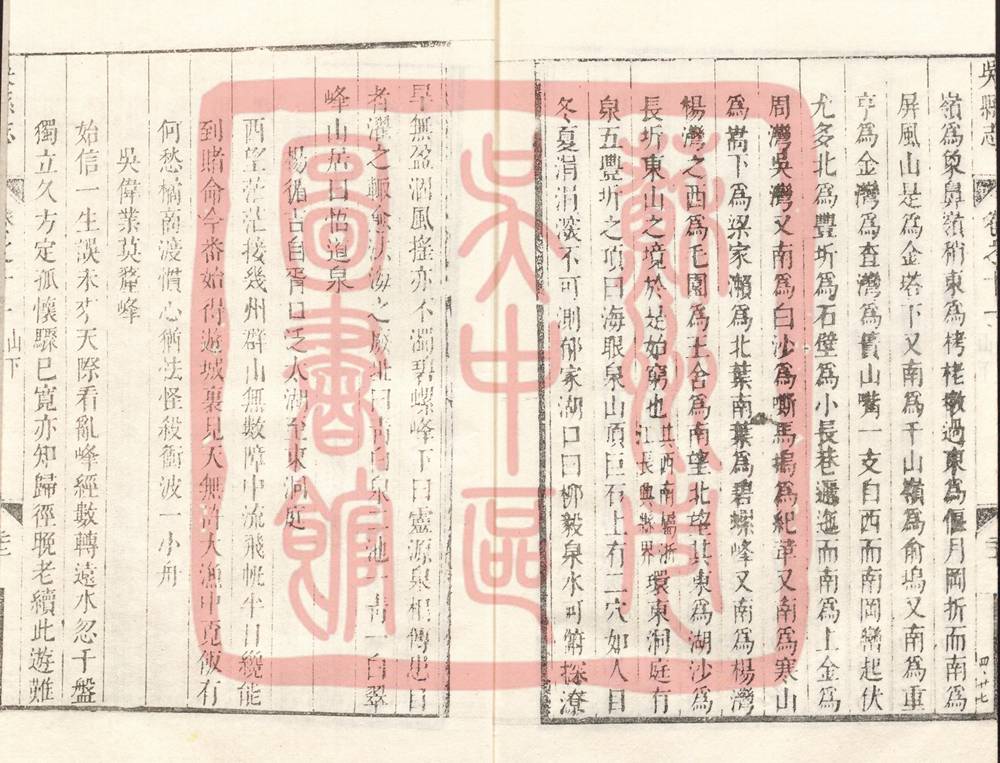 吳縣志 卷之 
嶺為象鼻嶺稍東為栲栳墩過東為偃月岡折而南為
屏風山是為金塔下又南為干山嶺為俞塢又南為重
亨為金灣為査灣為舊山嘴一支自西而南岡巒起伏
尤多北為豐圻為石壁為小長巷邐迤而南為上金為
周灣吳灣又南為白沙為嘶馬塢為紀革又南為寒山
為嵩下為梁家瀨為北葉南葉為碧螺峰又南為楊灣
楊灣之西為毛園為王舍為南望北望其東為湖沙為
長圻東山之境於是始窮也其西南屬浙江長興縣界環東洞庭有
泉五豐圻之項曰海眼泉山頂巨石上有二穴如人目
冬夏涓涓潑不可測郁家湖口曰柳毅泉水可第探潦
旱無盈涸風搖亦不濁碧螺峰下曰靈源泉相傳患目
者濯之輒
峰山居曰悟道泉
楊循吉自胥口泛太湖至東洞庭
西望茫茫接幾州群山無數障中流飛帆半日纔能
到賭命今番始得遊城裏見天無許大漁中覓飯有
何愁橘商渡慣心猶怯怪殺衝波一小舟
吳偉業莫釐峰
始信一生誤未來天際看亂峰經數轉遠水忽千盤
獨立久方定孤懷驟已寬亦知歸徑晚老續此遊難
山下
蘇州市
吳中區
圖書館